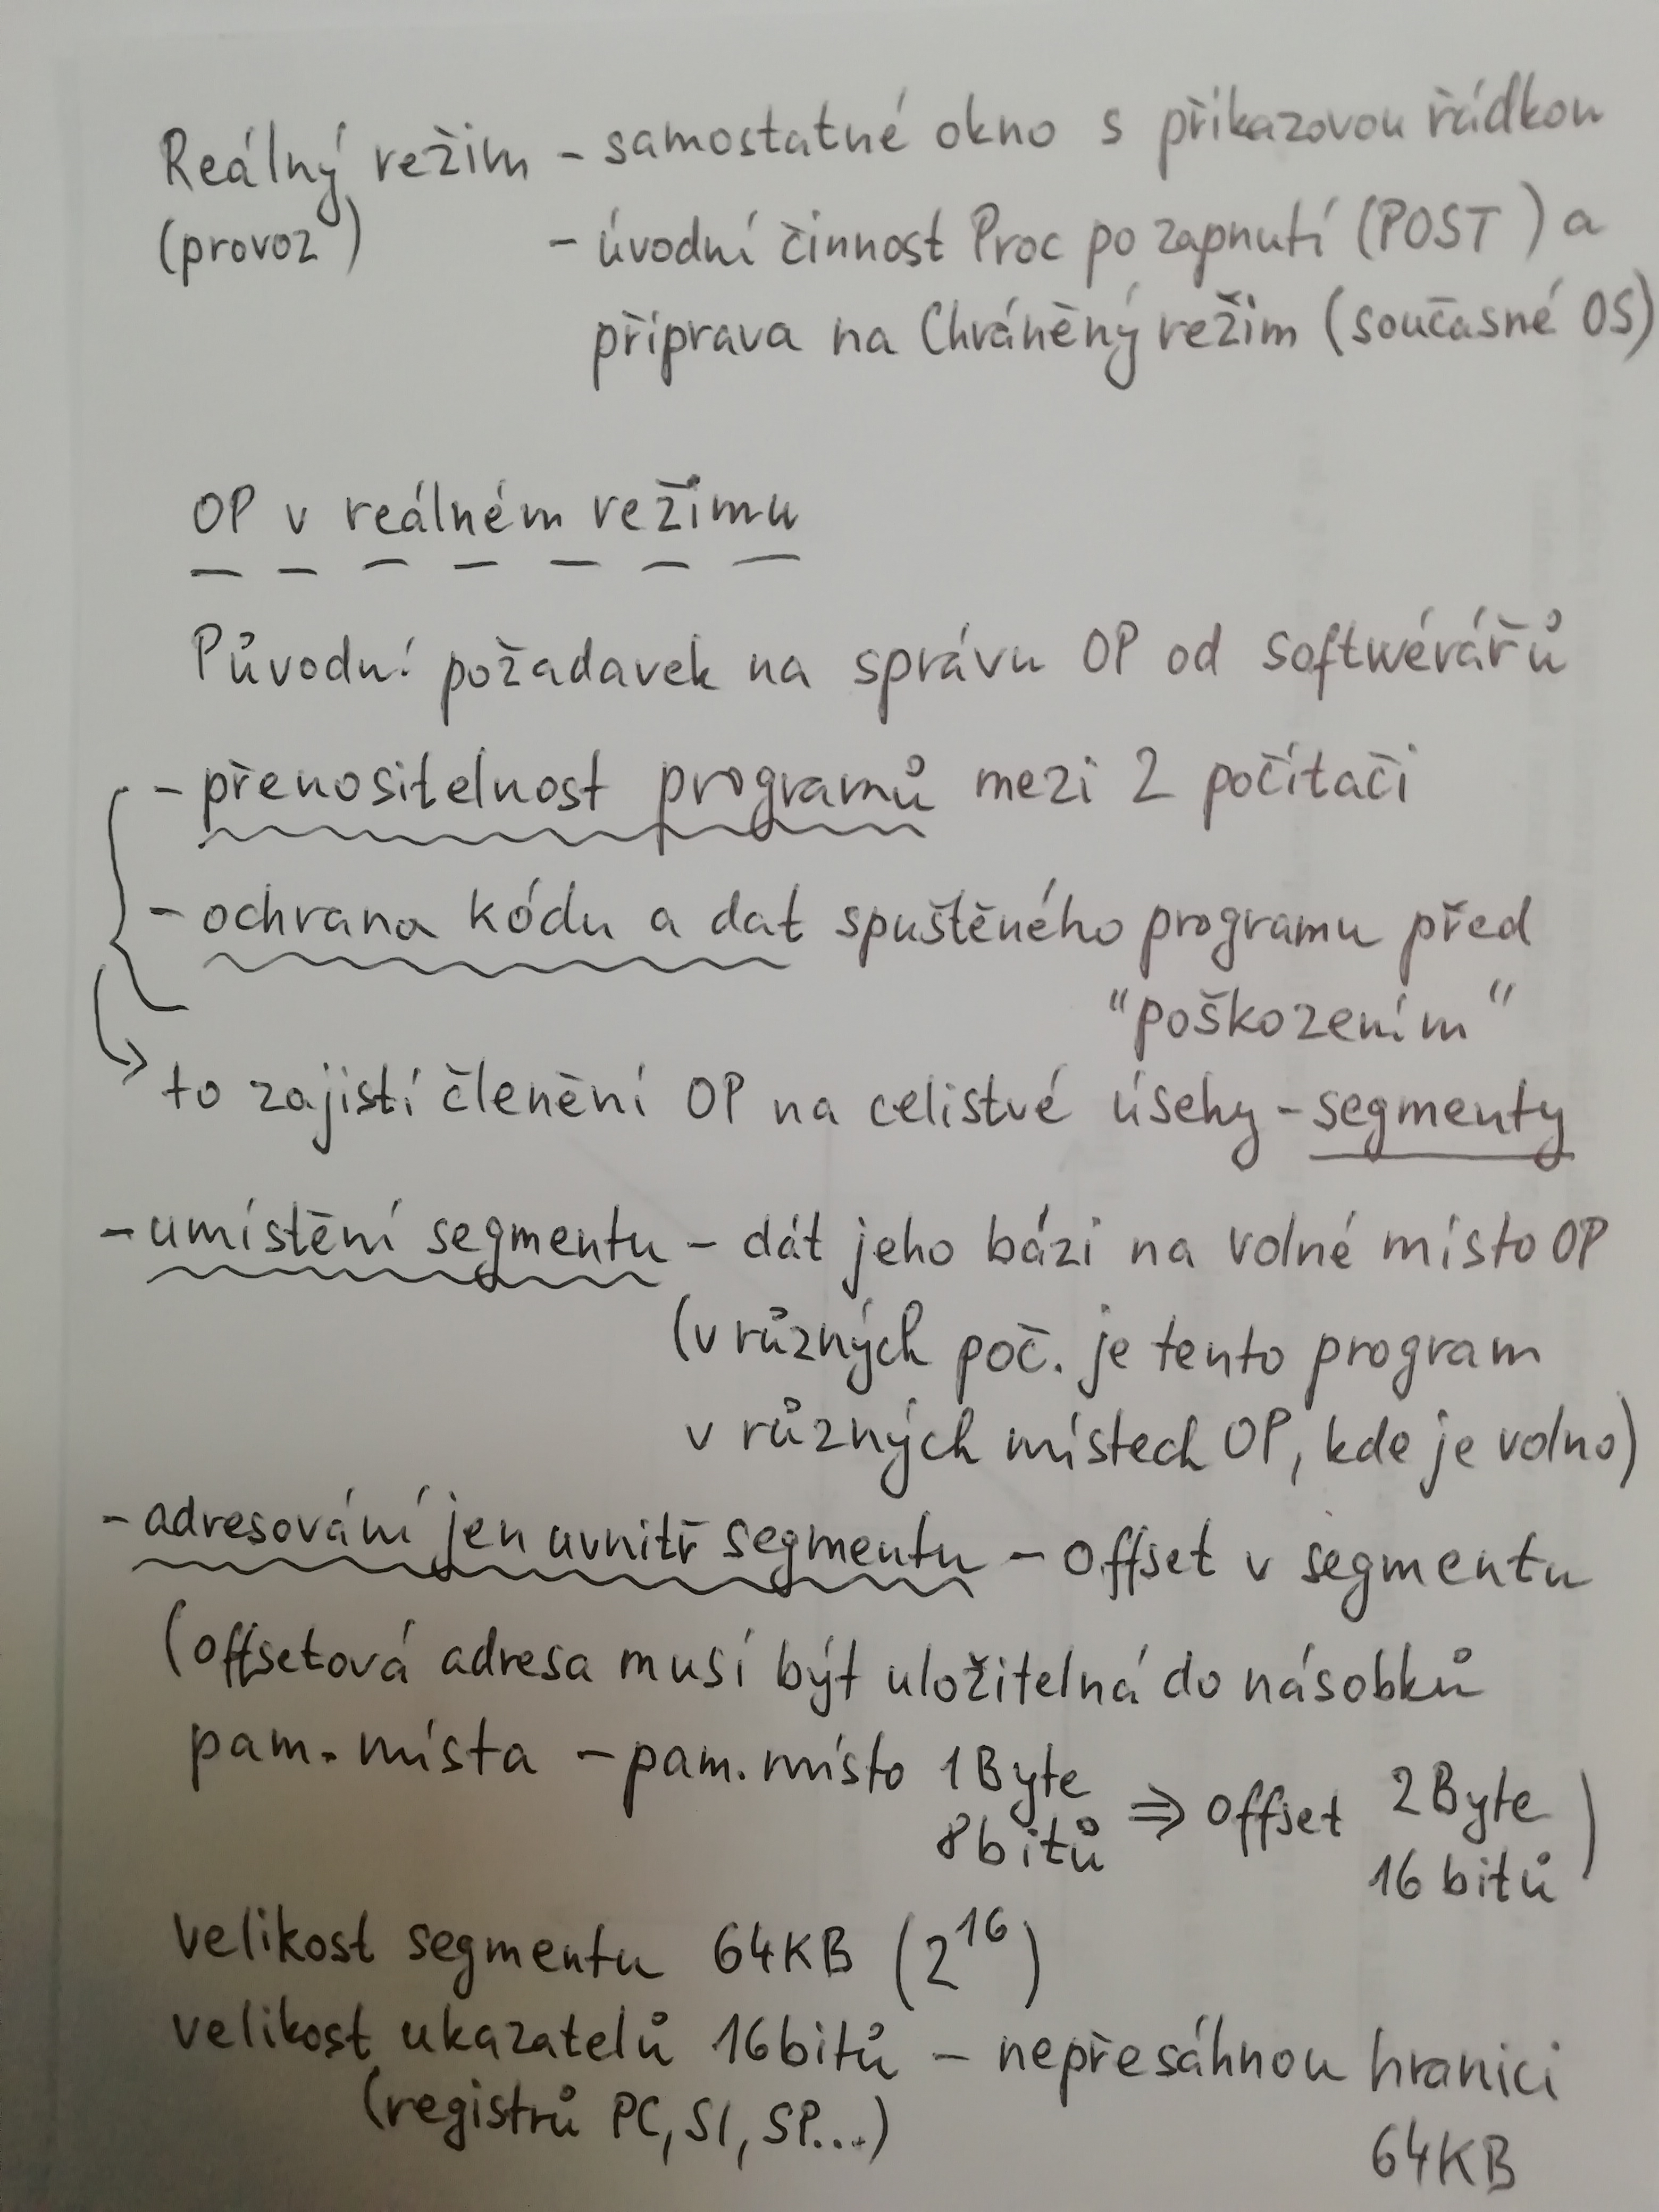 Reálný režim - samostatné okno s příkazovou řádkou
(provoz) - úvodní činnost Proc po zapnutí (POST) a
příprava na Chráněný režim (současné OS)
OP v reálném režimu
Původní požadavek na správu OP od softwérářů
- přenositelnost programů mezi 2 počítači
- ochrana kódu a dat spuštěného programu před
"poškozením"
to zajistí členění OP na celistvé úsehy - segmenty
- umístění segmentu - dát jeho bázi na volné místo OP
(v různých poč. je tento program
v různých místech OP, kde je volno)
- adresování jen uvnitř segmentu - offset v segmentu
(offsetová adresa musí být uložitelná do násobků
pam. místa - pam. místo 1Byte ⇒ offset 2Byte
8bitů 16 bitů)
velikost segmentu 64KB (2^16)
velikost ukazatelů 16bitů - nepřesáhnou hranici
(registrů PC, SI, SP...) 64KB